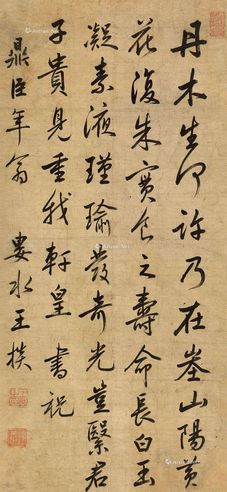 丹木生何許乃在峚山陽黃
花復朱實食之壽命長白玉
凝素液瑾瑜發奇光豈緊君
子貴見重我軒皇　書祝
鼎臣年翁　婁水王掞